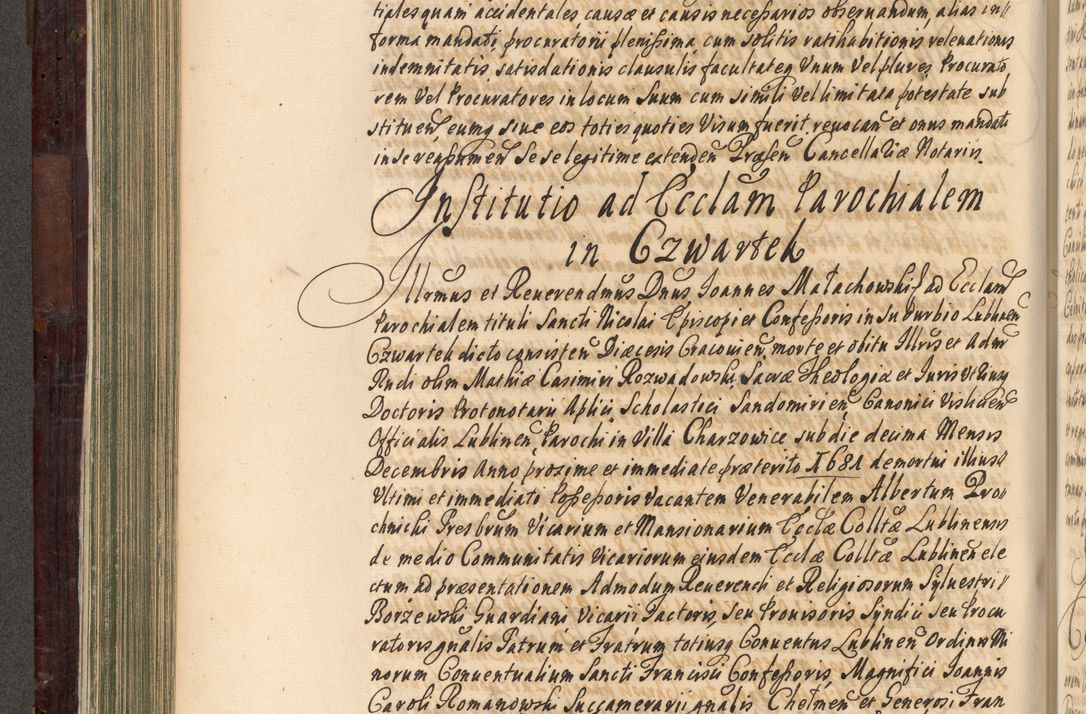 tiales quam accidentales causæ et causis necessarios obseruandum, alias in//
forma mandati procuratorii plenissima cum solitis ratihabitionis releuationis
indemnitatis, satisdationis clausulis facultateq Vnum Vel plures Procurato
rem Vel Procuratores in locum Suum cum simili Vel limitata potestate sub
stituen eumq siue eos toties quoties Visum fuerit reuocan et onus mandati
in se reassumen Se se legitime extenden Præsen Cancellariæ Notariis
Institutio ad Ecclam Parochialem
in Czwartek
Illrmus et Reuerendmus Dnus Joannes Małachowski ad Ecclam
Parochialem tituli Sancti Nicolai Episcopi et Confessoris in Suburbio Lublinen
Czwartek dicto consisten Diæcesis Cracouien, morte et obitu Illris et Admr
Rndi olim Mathiæ Casimiri Rozwadowski, Sacræ Theologiæ et Juris Vtriusq
Doctoris Protonotarii Aplici Scholastici Sandomirien Canonici Vislicien
Officialis Lublinen Parochi in Villa Charzowice sub die decima Mensis
Decembris Anno proxime et immediate præterito 1681 demortui illius//
Vltimi et immediati Possessoris Vacantem Venerabilem Albertum Pro//
chnicki Presbrum Vicarium et Mansionarium Ecclæ Colltæ Lublinensis
de medio Communitatis Vicariorum eiusdem Ecclæ Colltæ Lublinen ele
ctum ad præsentationem Admodum Reuerendi et Religiosorum Syluestri//
Borzewski Guardiani Vicarii Factoris, seu Prouisoris Syndici seu Procu
ratoris gnalis Patrum et Fratrum totiusq Conuentus Lublinen Ordinis Mi
norum Conuentualium Sancti Francisci Confessoris, Magnifici Joannis
Caroli Romanowski Succamerarii gnalis Chelmen et Generosi Fran